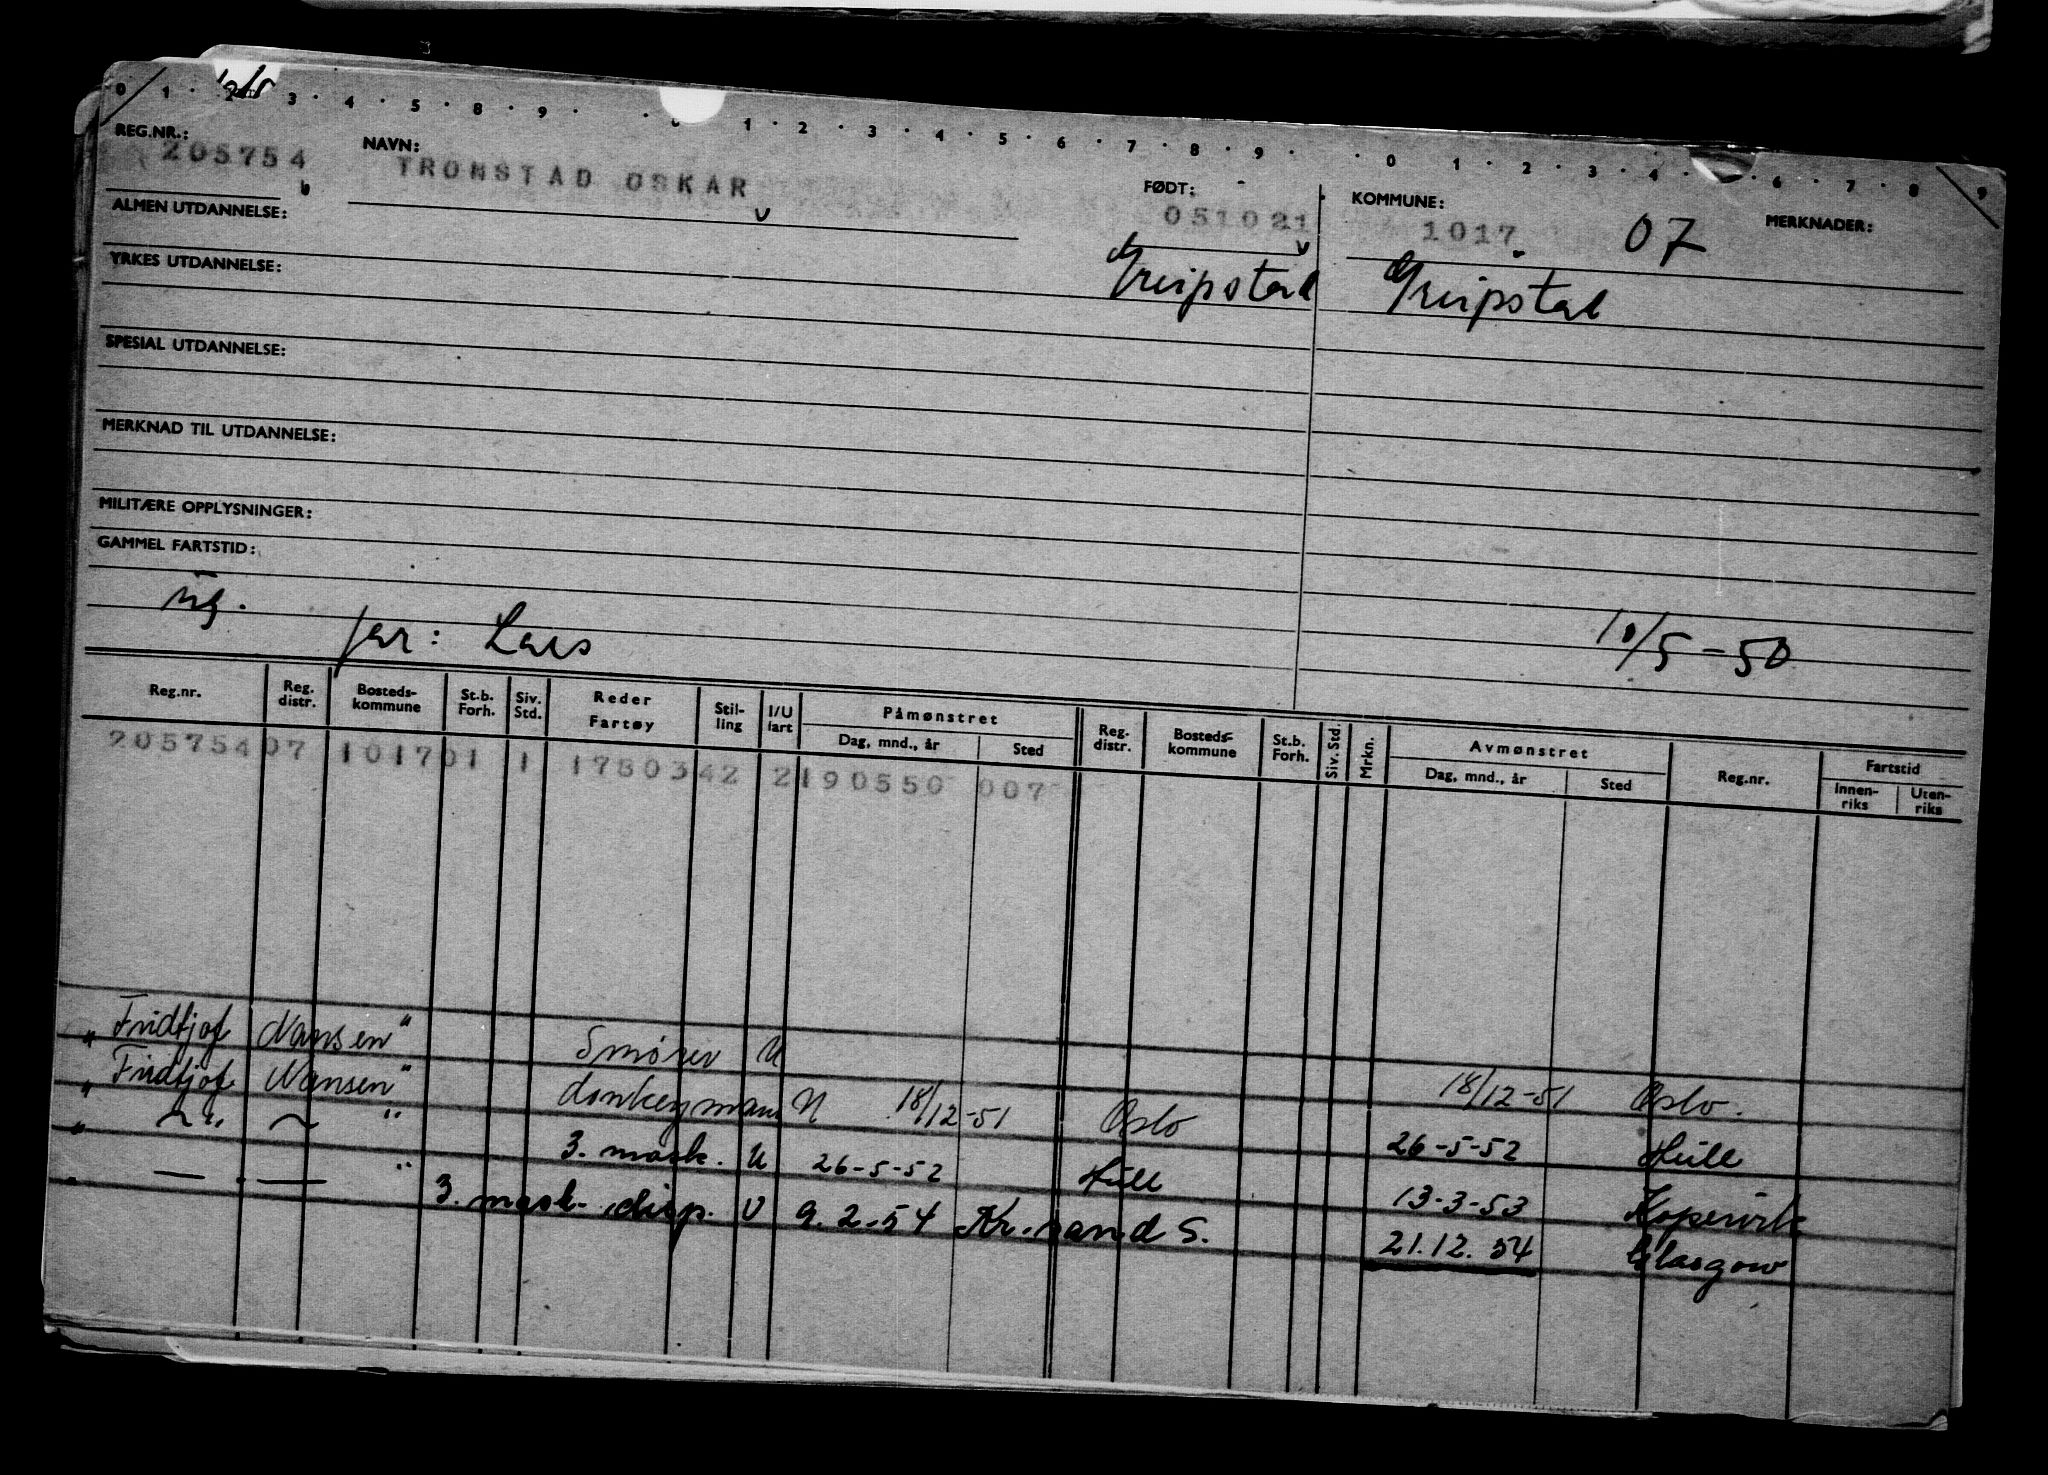 0 1 · 2 · 3 · 4 · 5 · 8 · 9 · · 1 · 2 · 3 · 4 · 5 · 6 · 7 · 8 · 9 · · 0 1 · 2 · 3 · 4 · 6 · 7 · 8 9
REG.NR.: 205754 NAVN: TRONSTAD OSKAR FØDT: 051021 KOMMUNE: 1017 07 MERKNADER:
ALMEN UTDANNELSE: Greipstad Greipstad
YRKES UTDANNELSE:
SPESIAL UTDANNELSE:
MERKNAD TIL UTDANNELSE:
MILITÆRE OPPLYSNINGER:
GAMMEL FARTSTID:
ug. far: Lars 10/5-50
Reg.nr. Reg. distr. Bosteds-kommune St.b. Forh. Siv. Std. Reder Fartøy Stil-ling I/U fart Påmønstret Dag, mnd., år Sted Reg. distr. Bosteds-kommune St.b. Forh. Siv. Std. Mrkn. Avmønstret Dag, mnd., år Sted Reg.nr. Fartstid Innen-riks Uten-riks
205754 07 1017 01 1 1780342 2 190550 007
"Fridtjof Nansen" Smører U 18/12-51 Oslo.
"Fridtjof Nansen" donkeymann U 18/12-51 Oslo 26-5-52 Hull
" — " — " 3. mask. U 26-5-52 Hull 13-3-53 Kopervik
" — " — " 3. mask. disp. U 9.2.54 Kr.sand S. 21.12.54 Glasgow